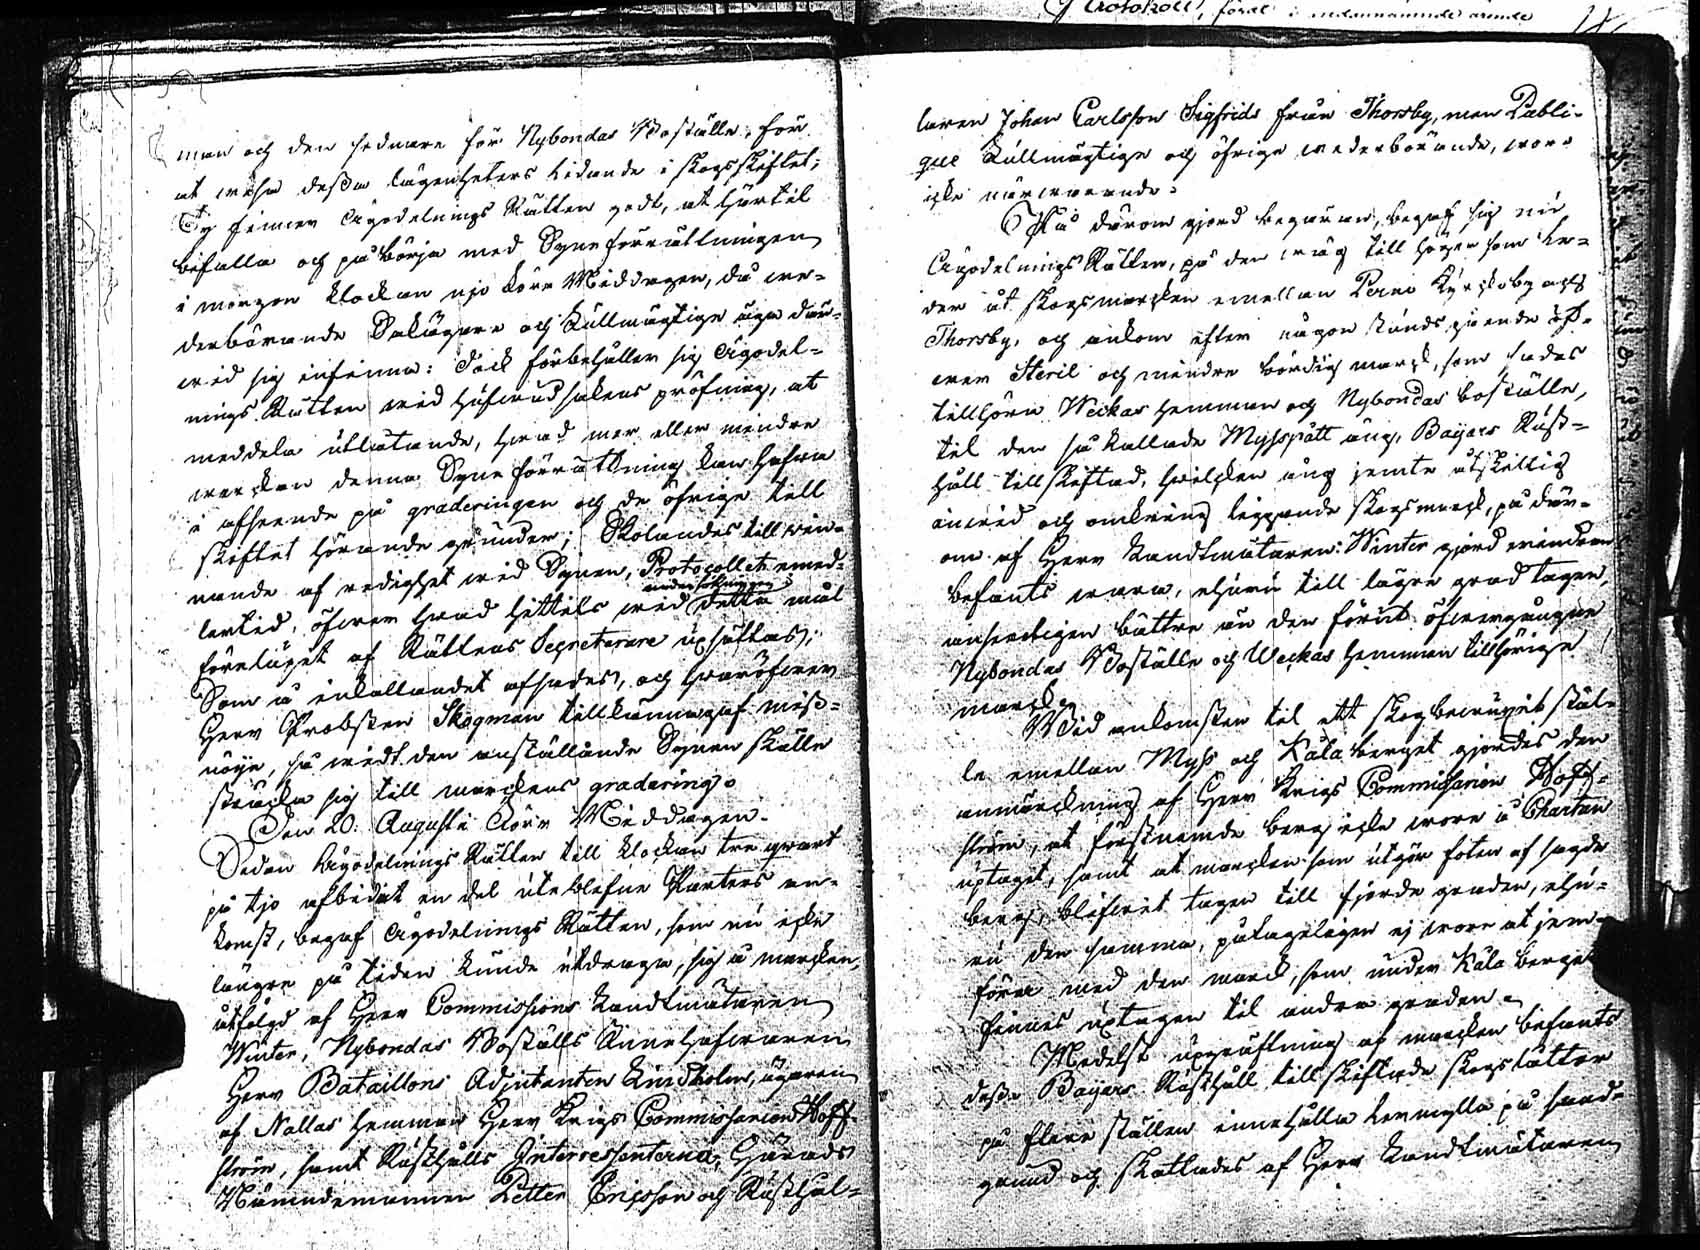 man och den sednare för Nybondas Boställe, för
at wisa dessa lägenheters lidande i skogsskiftet;
Ty finner Ägodelnings Rätten godt, at härtil
bifalla och påbörja med Syneförrättningen
i morgon klockan nijo före Middagen, då we-
derbörande Sakägare och Fullmägtige äga där-
wid sig infinna: Dock förbehåller sig Ägodel-
nings Rätten wid hufwudsakens pröfning, at
meddela utlåtande, hwad mer eller mindre
wärkan denna Syneförrättning kan hafwa
i afseende på graderingen och de öfrige till
skiftet hörande grunder; Skolandes till win-
nande af redighet wid Synen, Protocollet emed-
lertid, öfwer hwad hittils wid detta mål
undersökningen
förelupit af Rättens Secreterare upsättas;
Som å inkallandet afsades, och hwaröfwer
Herr Probsten Skogman tillkännagaf miss-
nöije, så widt den anställande Synen skulle
sträcka sig till markens gradering.
Den 20. Augusti före Middagen.
Sedan Ägodelnings Rätten till klockan tre qwart
på tijo afbidat en del uteblefne Parters an-
komst, begaf Ägodelnings Rätten, som nu icke
längre på tiden kunde utdraga, sig å marcken,
åtfölgd af Herr Commissions Landtmätaren
Winter, Nybondas Boställs Innehafwaren
Herr Bataillons Adjutanten Lindholm, ägaren
af Nallas hemman Herr Krigs Commissarien Hoff-
ström, samt Rusthålls Interessenterna, Härads
Nämndemannen Petter Ericsson och Rusthål-
Protokoll, fördt i nedannämnde ärende
laren Johan Carlsson Sigfrids från Thorsby, men Publi-
que Fullmägtige och öfrige wederbörande, wore
icke närwarande.
På därom gjord begäran, begaf sig nu
Ägodelnings Rätten, på den wäg till höger som le-
der åt skogsmarcken emellan Perno Kyrckoby och
Thorsby, och ankom efter någon stunds gående öf-
wer Steril och mindre bördig marck, som sades
tillhöra Weckas hemman och Nybondas boställe,
til den så kallade Myssjiätt äng, Baijars Rust-
håll tillskiftad, hwilcken äng jemte åtskillig
inwid och omkring liggande skogsmarck, på där-
om af Herr Landtmätaren Winter gjord erindran
befants wara, ehuru till lägre grad tagen,
ansenligen bättre än den förut öfwergångne
Nybondas Boställe och Weckas hemman tillhörige
marck.
Wid ankomsten til ett skogbewuxit stäl-
le emellan Myss och Kåla berget gjordes den
anmärckning af Herr Krigs Commissarien Hoff-
ström, at förstnämde berg icke wore å Chartan
uptaget, samt at marcken som utgör foten af sagde
berg, blifwit tagen till fjerde graden, ehu-
ru den samma, påtageligen ej wore at jem-
föra med den marck, som under Kåla berget
finnes uptagen til andra graden.
Medelst upgräftning af marcken befants
desse Baijars Rusthåll tillskiftade skogstrackter
på flere ställen innehålla lermylla på sand-
grund och skattades af Herr Landtmätaren